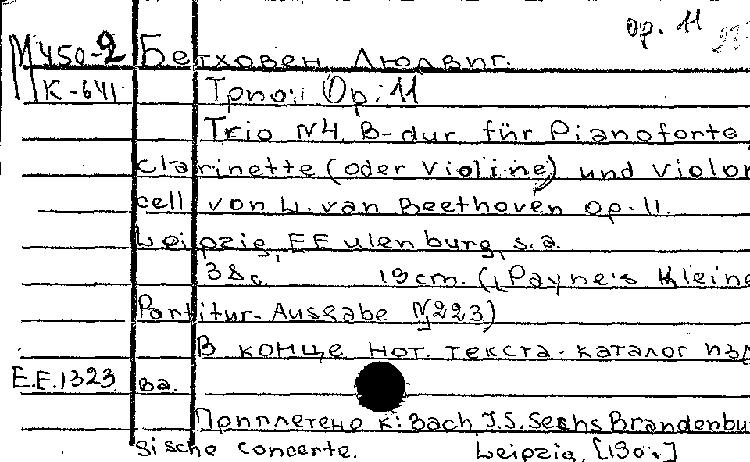 op. 11
М450-2 Бетховен Людвиг.
К-641 Трио: Op: 11
Trio N4 B-dur für Pianoforte,
clarinette (oder Violine) und Violon
cell von L. van Beethoven Op. 11.
Leipzig, E E ulenburg, s.a.
38с. 19 cm. (Payne's Kleine
Partitur-Ausgabe №223)
В конце нот. текста - каталог изд
E.E.1323 ва.
Приплетено к: Bach J.S. Sechs Brandenbu
gische Concerte. Leipzig, [130.]